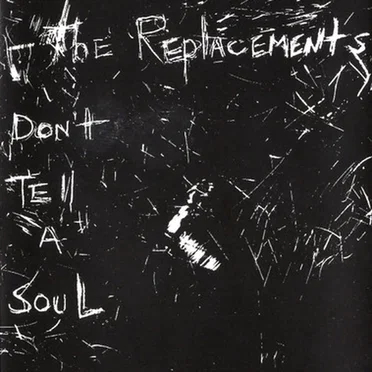 The REPlACEMENtS
DON't
TEll
A
SouL